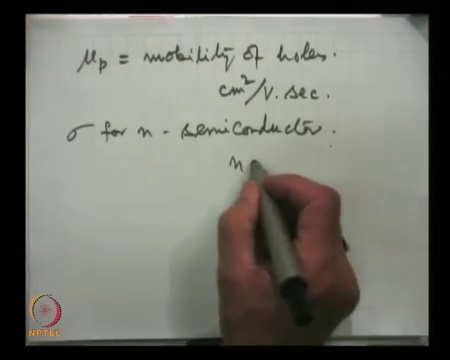 μp = mobility of holes.
cm²/V.sec.
σ for n - semiconductor.
n
NPTEL